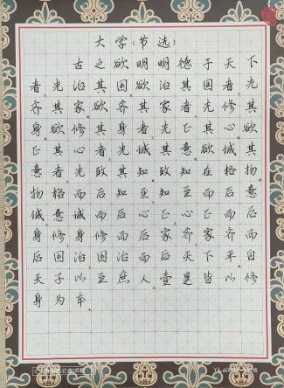 大学(节选)
古之欲明明德于天下
者先治其国欲治其国者先
齐其家欲齐其家者先修其
身欲修其身者先正其心欲
正其心者先诚其意欲诚其
意者先致其知致知在格物
物格而后知至知至而后意
诚意诚而后心正心正而后
身修身修而后家齐家齐而
后国治国治而后天下平自
天子以至庶人壹是皆以修
身为本